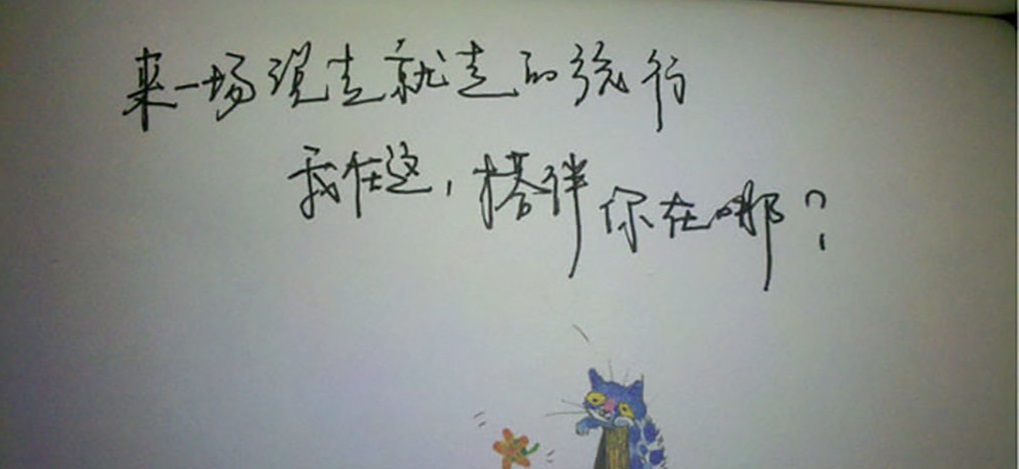 来一场说走就走的旅行
我在这，搭伴你在哪？